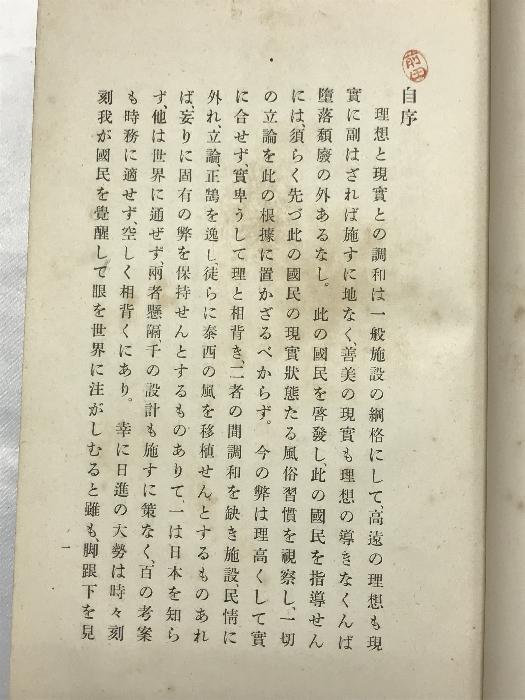 前田
自序
理想と現實との調和は一般施設の綱格にして、高遠の理想も現
實に副はざれば施すに地なく、善美の現實も理想の導きなくんば
墮落頽廢の外あるなし。此の國民を啓發し、此の國民を指導せん
には、須らく先づ此の國民の現實狀態たる風俗習慣を視察し、一切
の立論を此の根據に置かざるべからず。今の弊は理高くして實
に合せず、實卑うして理と相背き、二者の間調和を缺き施設、民情に
外れ、立論、正鵠を逸し、徒らに泰西の風を移植せんとするものあれ
ば、妄りに固有の弊を保持せんとするものありて、一は日本を知ら
ず、他は世界に通ぜず、兩者懸隔、千の設計も施すに策なく、百の考案
も時務に適せず、空しく相背くにあり。幸に日進の大勢は時々刻
刻我が國民を覺醒して眼を世界に注がしむると雖も、脚跟下を見
一